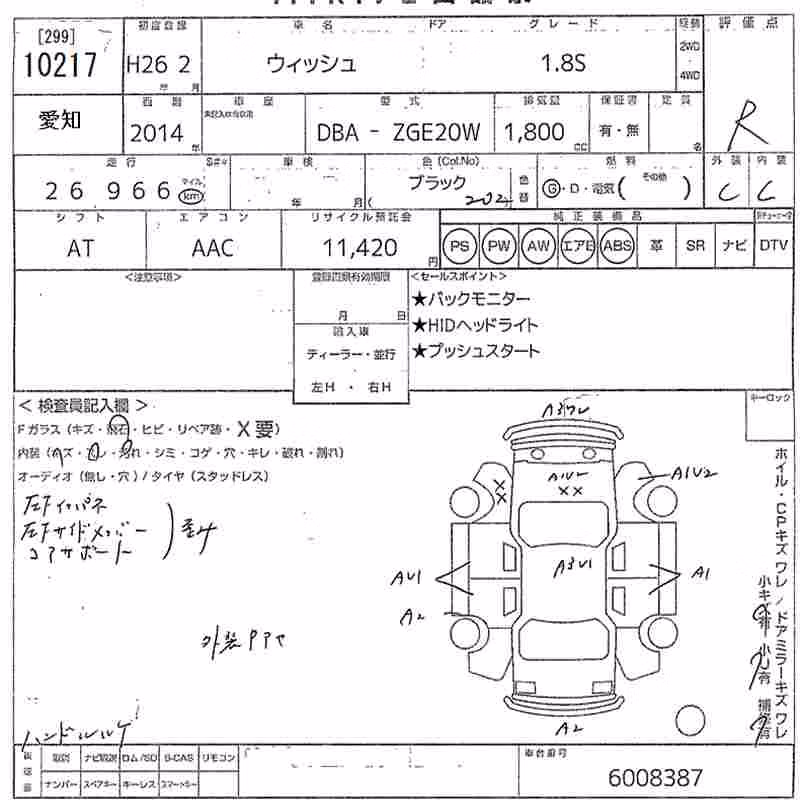 [299]
10217
初度登録
車名
ドア
グレード
駆動
評価点
H26 2
年 月
ウィッシュ
1.8S
2WD
4WD
愛知
西暦
車歴
型式
排気量
保証書
定員
R
2014
年
DBA - ZGE20W
1,800
CC
有・無
名
走行
車検
色(Col.No)
燃料
外装
内装
26 966
マイル
km
年 月
ブラック
202
色替
G・D・電気( その他 )
C C
シフト
エアコン
リサイクル預託金
純正装備品
AT
AAC
11,420
円
PS PW AW エアB ABS 革 SR ナビ DTV
<注意事項>
登録書類有効期限
月 日
<セールスポイント>
★バックモニター
★HIDヘッドライト
★プッシュスタート
輸入車
ディーラー・並行
左H ・ 右H
キーロック
<検査員記入欄>
Fガラス(キズ・飛石・ヒビ・リペア跡・X要)
内装(キズ・スレ・汚れ・シミ・コゲ・穴・キレ・破れ・割れ)
オーディオ(無し・穴)/タイヤ(スタッドレス)
左Fインパネ
左Fサイドメンバー
コアサポート
外装PTセ
A1U2
XX
A1U2
A3U1
AU1
A1
A2
A2
ハンドルルケ
ホイル・CPキズワレ/ドアミラーキズワレ
小キズ有 小U有 補修有
取説 ナビ取説 ロム/SD B-CAS リモコン
ナンバー スペアキー キーレス スマートキー
車台番号
6008387